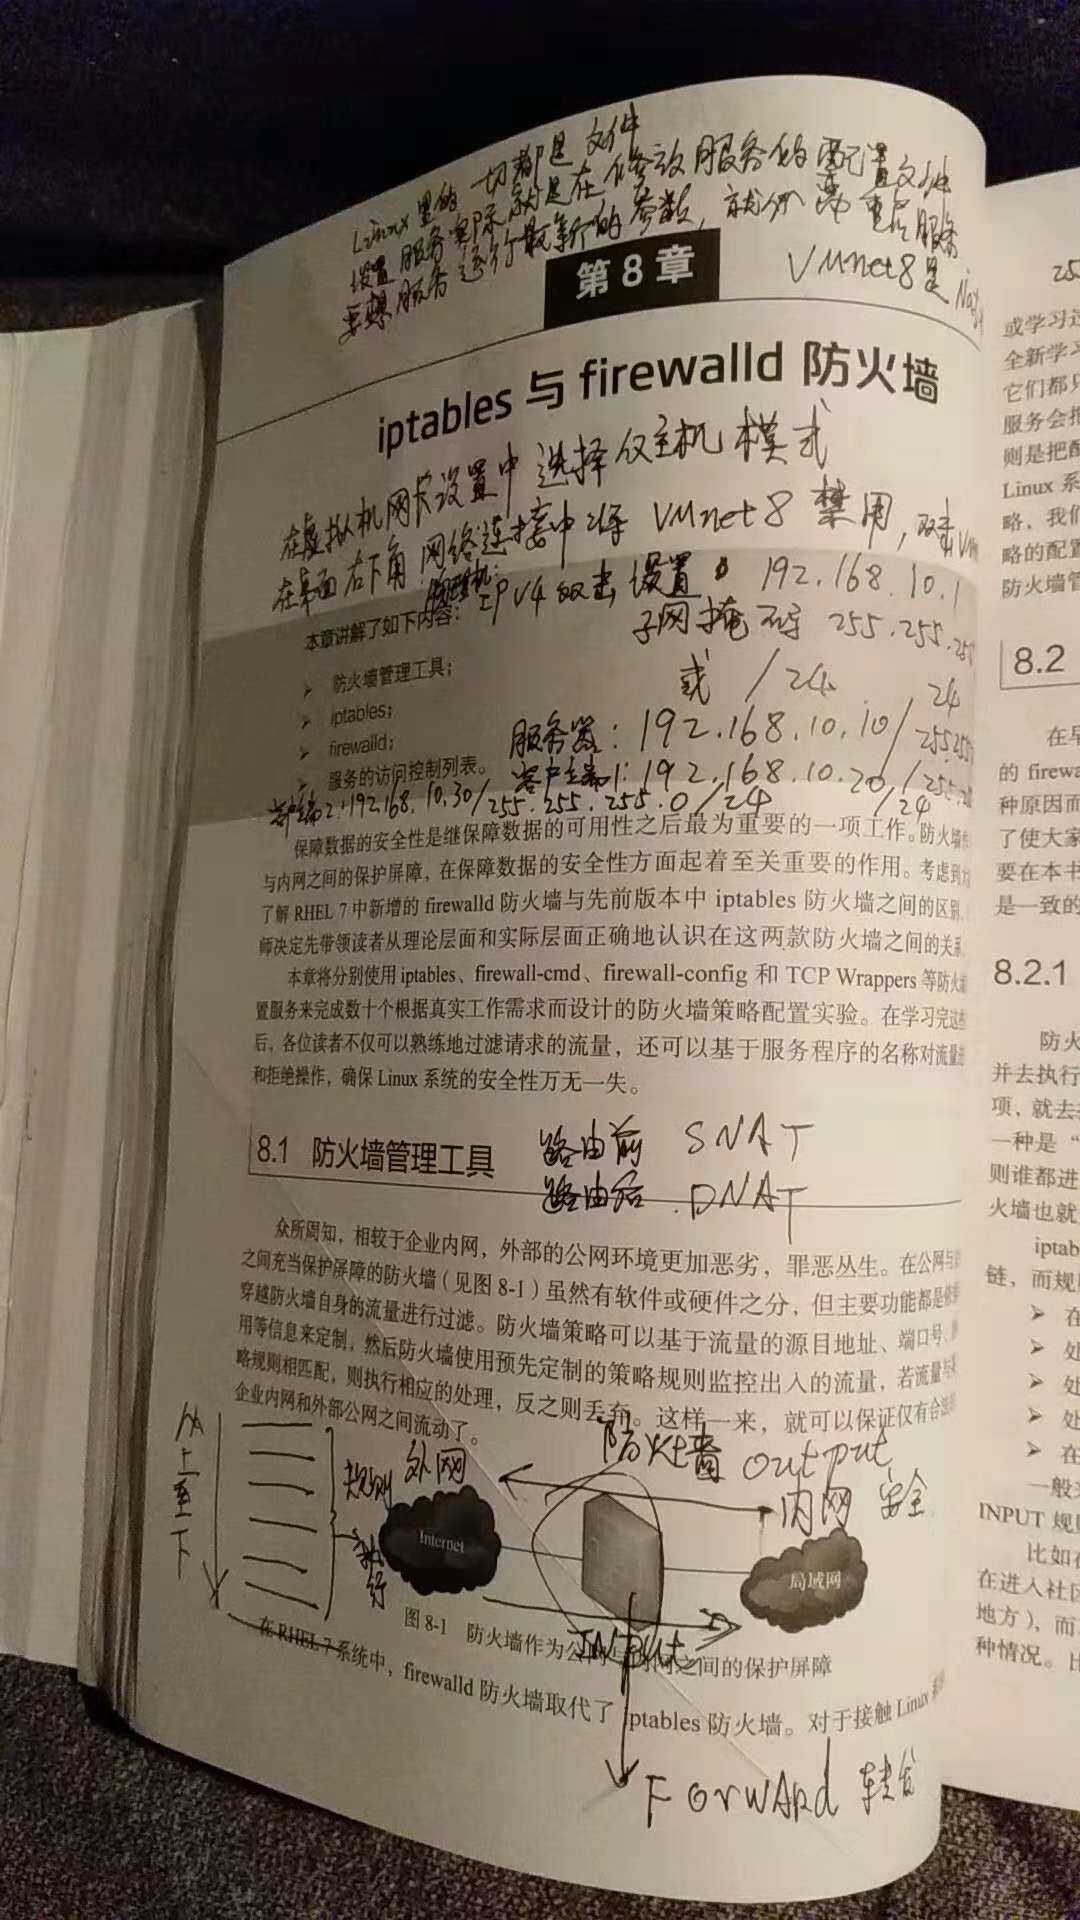 Linux里的一切都是文件
设置服务实际就是在修改服务的配置文件
要想服务运行最新的参数，就必需重启服务
VMnet8是
第8章
iptables与firewalld防火墙
在虚拟机网卡设置中选择仅主机模式
在桌面右下角网络连接中将VMnet8禁用，双击VM
物理机：IPV4双击设置 192.168.10.1
子网掩码 255.255.25
或 /24
本章讲解了如下内容：
➤ 防火墙管理工具；
➤ iptables；
➤ firewalld；
➤ 服务的访问控制列表。
服务器：192.168.10.10/24
255.255
客户端1：192.168.10.20/255.
/24
客户端2：192.168.10.30/255.255.255.0/24
保障数据的安全性是继保障数据的可用性之后最为重要的一项工作。防火墙
与内网之间的保护屏障，在保障数据的安全性方面起着至关重要的作用。考虑到大
了解RHEL 7中新增的firewalld防火墙与先前版本中iptables防火墙之间的区别，
师决定先带领读者从理论层面和实际层面正确地认识在这两款防火墙之间的关系。
本章将分别使用iptables、firewall-cmd、firewall-config和TCP Wrappers等防火
置服务来完成数十个根据真实工作需求而设计的防火墙策略配置实验。在学习完这
后，各位读者不仅可以熟练地过滤请求的流量，还可以基于服务程序的名称对流量
和拒绝操作，确保Linux系统的安全性万无一失。
8.1 防火墙管理工具
路由前 SNAT
路由后 DNAT
众所周知，相较于企业内网，外部的公网环境更加恶劣，罪恶丛生。在公网与
之间充当保护屏障的防火墙（见图8-1）虽然有软件或硬件之分，但主要功能都是依据
穿越防火墙自身的流量进行过滤。防火墙策略可以基于流量的源目地址、端口号、
用等信息来定制，然后防火墙使用预先定制的策略规则监控出入的流量，若流量与
略规则相匹配，则执行相应的处理，反之则丢弃。这样一来，就可以保证仅有合法
企业内网和外部公网之间流动了。
从上至下
规则
执行
外网
防火墙 output
内网 安全
Internet
局域网
INPUT
图8-1 防火墙作为公网与内网之间的保护屏障
在RHEL 7系统中，firewalld防火墙取代了iptables防火墙。对于接触Linux
Forward 转发
25
或学习
全新学习
它们都只
服务会
则是把
Linux系
略，我们
略的配置
防火墙管
8.2
在早
的firewa
种原因而
了使大家
要在本书
是一致的
8.2.1
防火
并去执行
项，就去
一种是“
则谁都进
火墙也就
iptab
链，而规
➤ 在
➤ 处
➤ 处
➤ 处
➤ 在
一般
INPUT规
比如在
在进入社区
地方），而
种情况。比